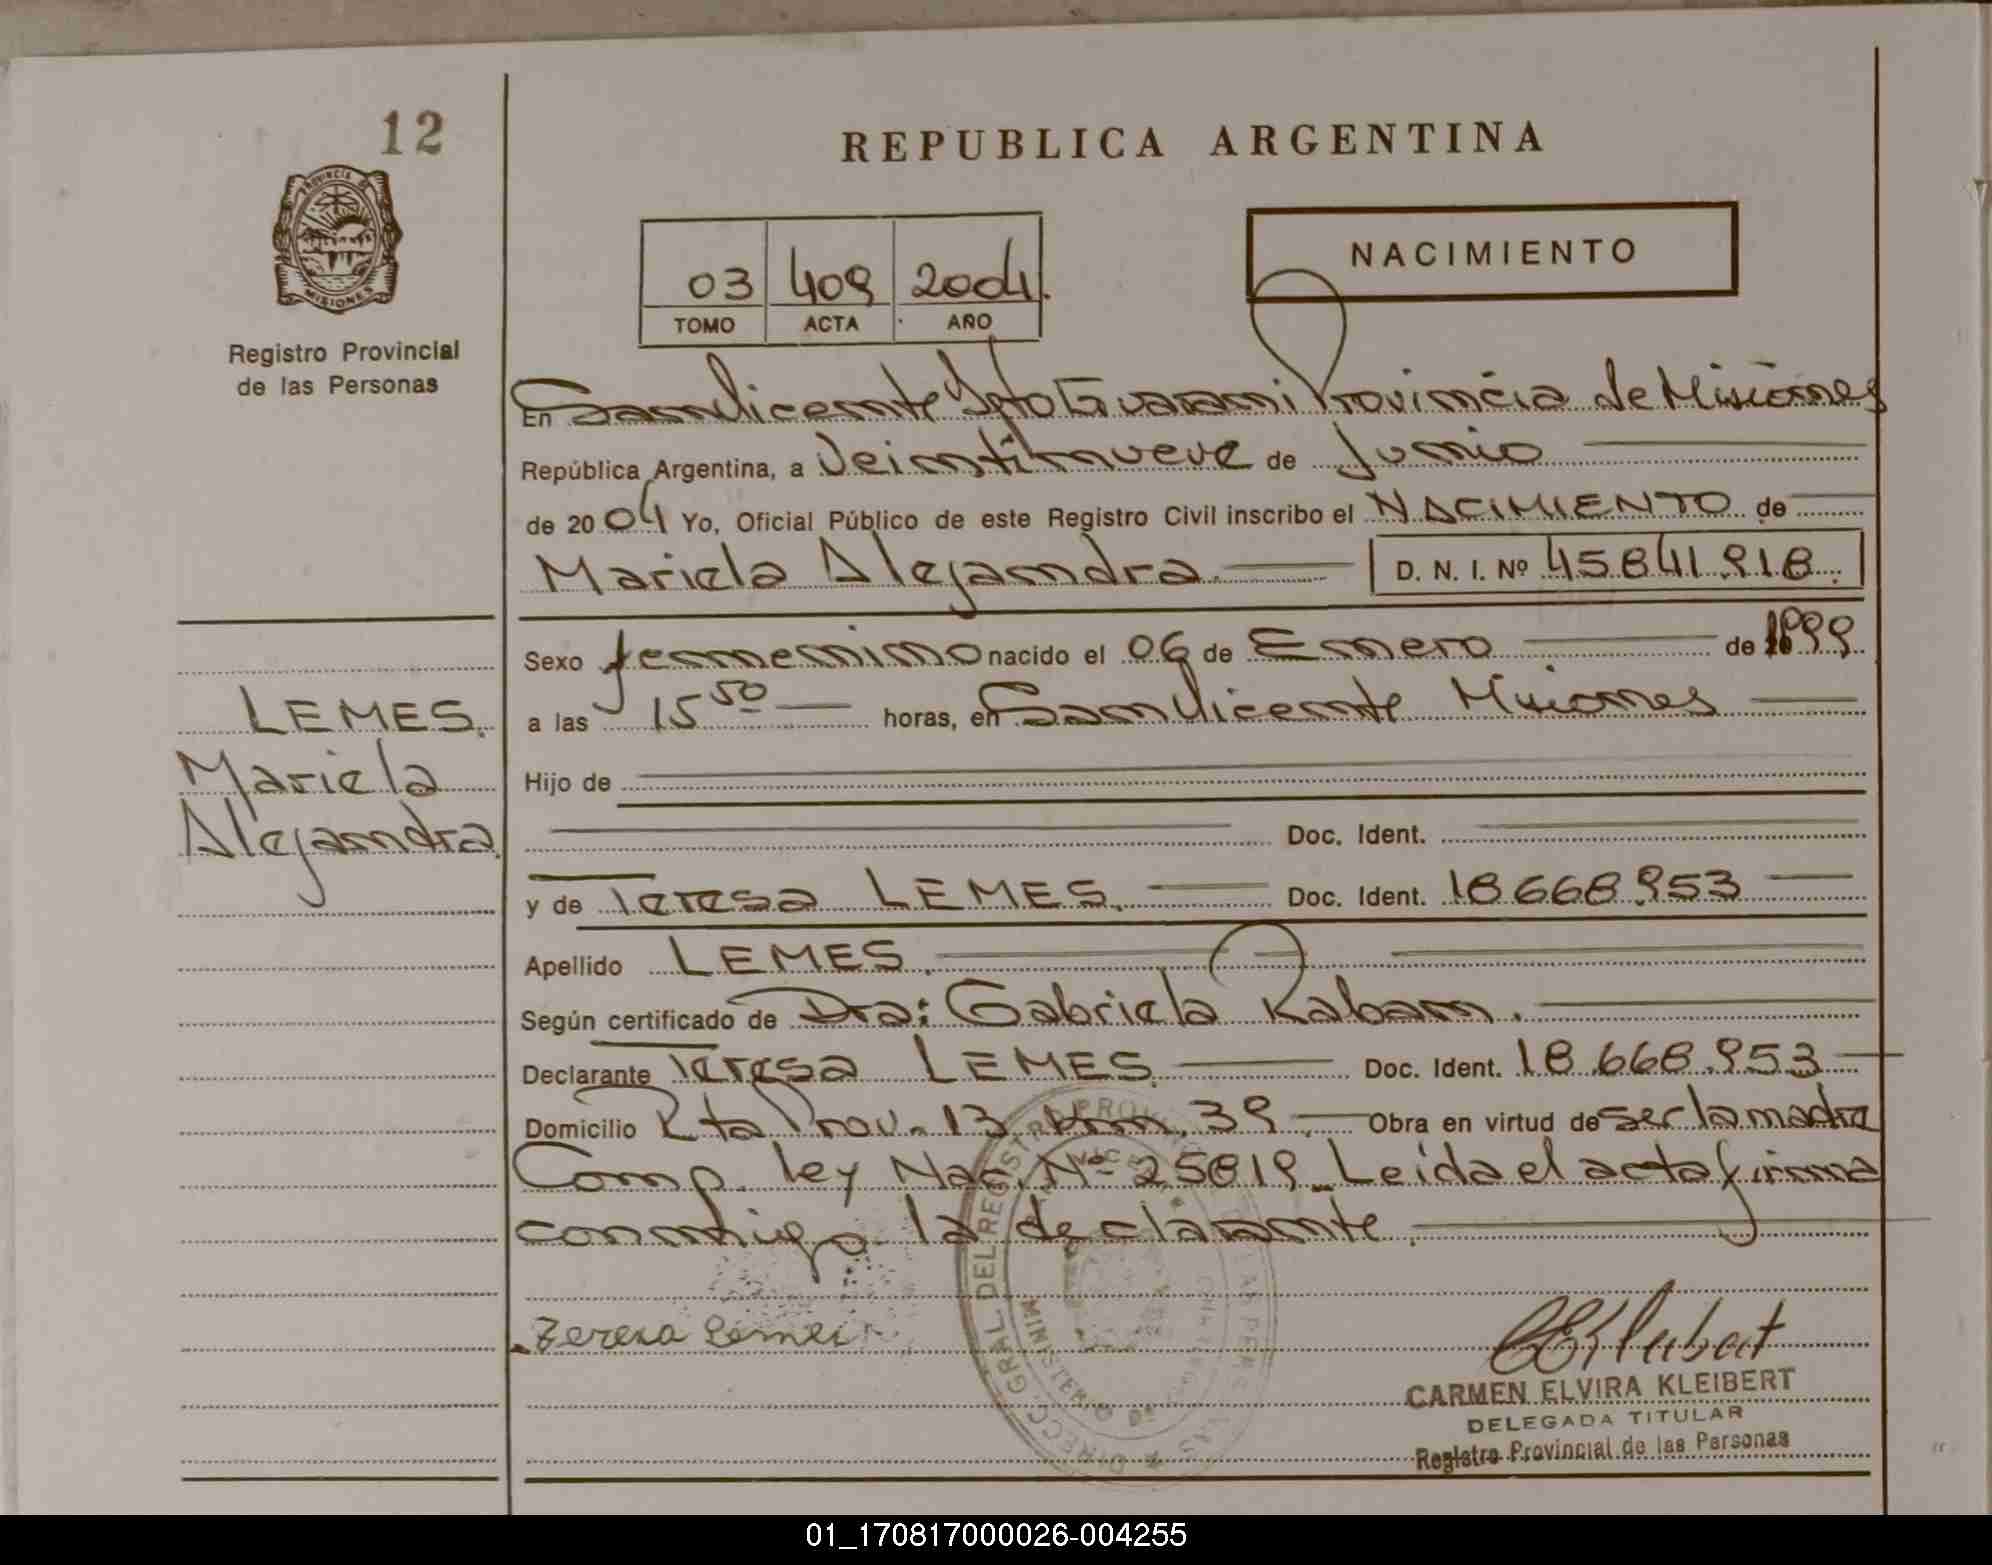 12
REPUBLICA ARGENTINA
PROVINCIA DE
MISIONES
Registro Provincial
de las Personas
NACIMIENTO
03 409 2004.
TOMO ACTA AÑO
En San Vicente Dpto Guarani Provincia de Misiones
República Argentina, a Veintinueve de Junio
de 2004 Yo, Oficial Público de este Registro Civil inscribo el NACIMIENTO de
Mariela Alejandra D. N. I. Nº 45.841.918.
Sexo femenino nacido el 06 de Enero de 1999
a las 15 50 horas, en San Vicente Misiones
LEMES.
Mariela
Alejandra
Hijo de
Doc. Ident.
y de Teresa LEMES. Doc. Ident. 18.668.953
Apellido LEMES.
Según certificado de Dra: Gabriela Raban.
Declarante Teresa LEMES. Doc. Ident. 18.668.953
Domicilio Rta Prov. 13 Km. 39. Obra en virtud de ser la madre
Comp. ley Nac. Nº 25819. Leida el acta firma
conmigo la declarante.
Teresa Lemes
DIRECC. GRAL DEL REGISTRO PROVINCIAL DE LAS PERSONAS
MINISTERIO DE
CARMEN ELVIRA KLEIBERT
DELEGADA TITULAR
Registro Provincial de las Personas
01_170817000026-004255